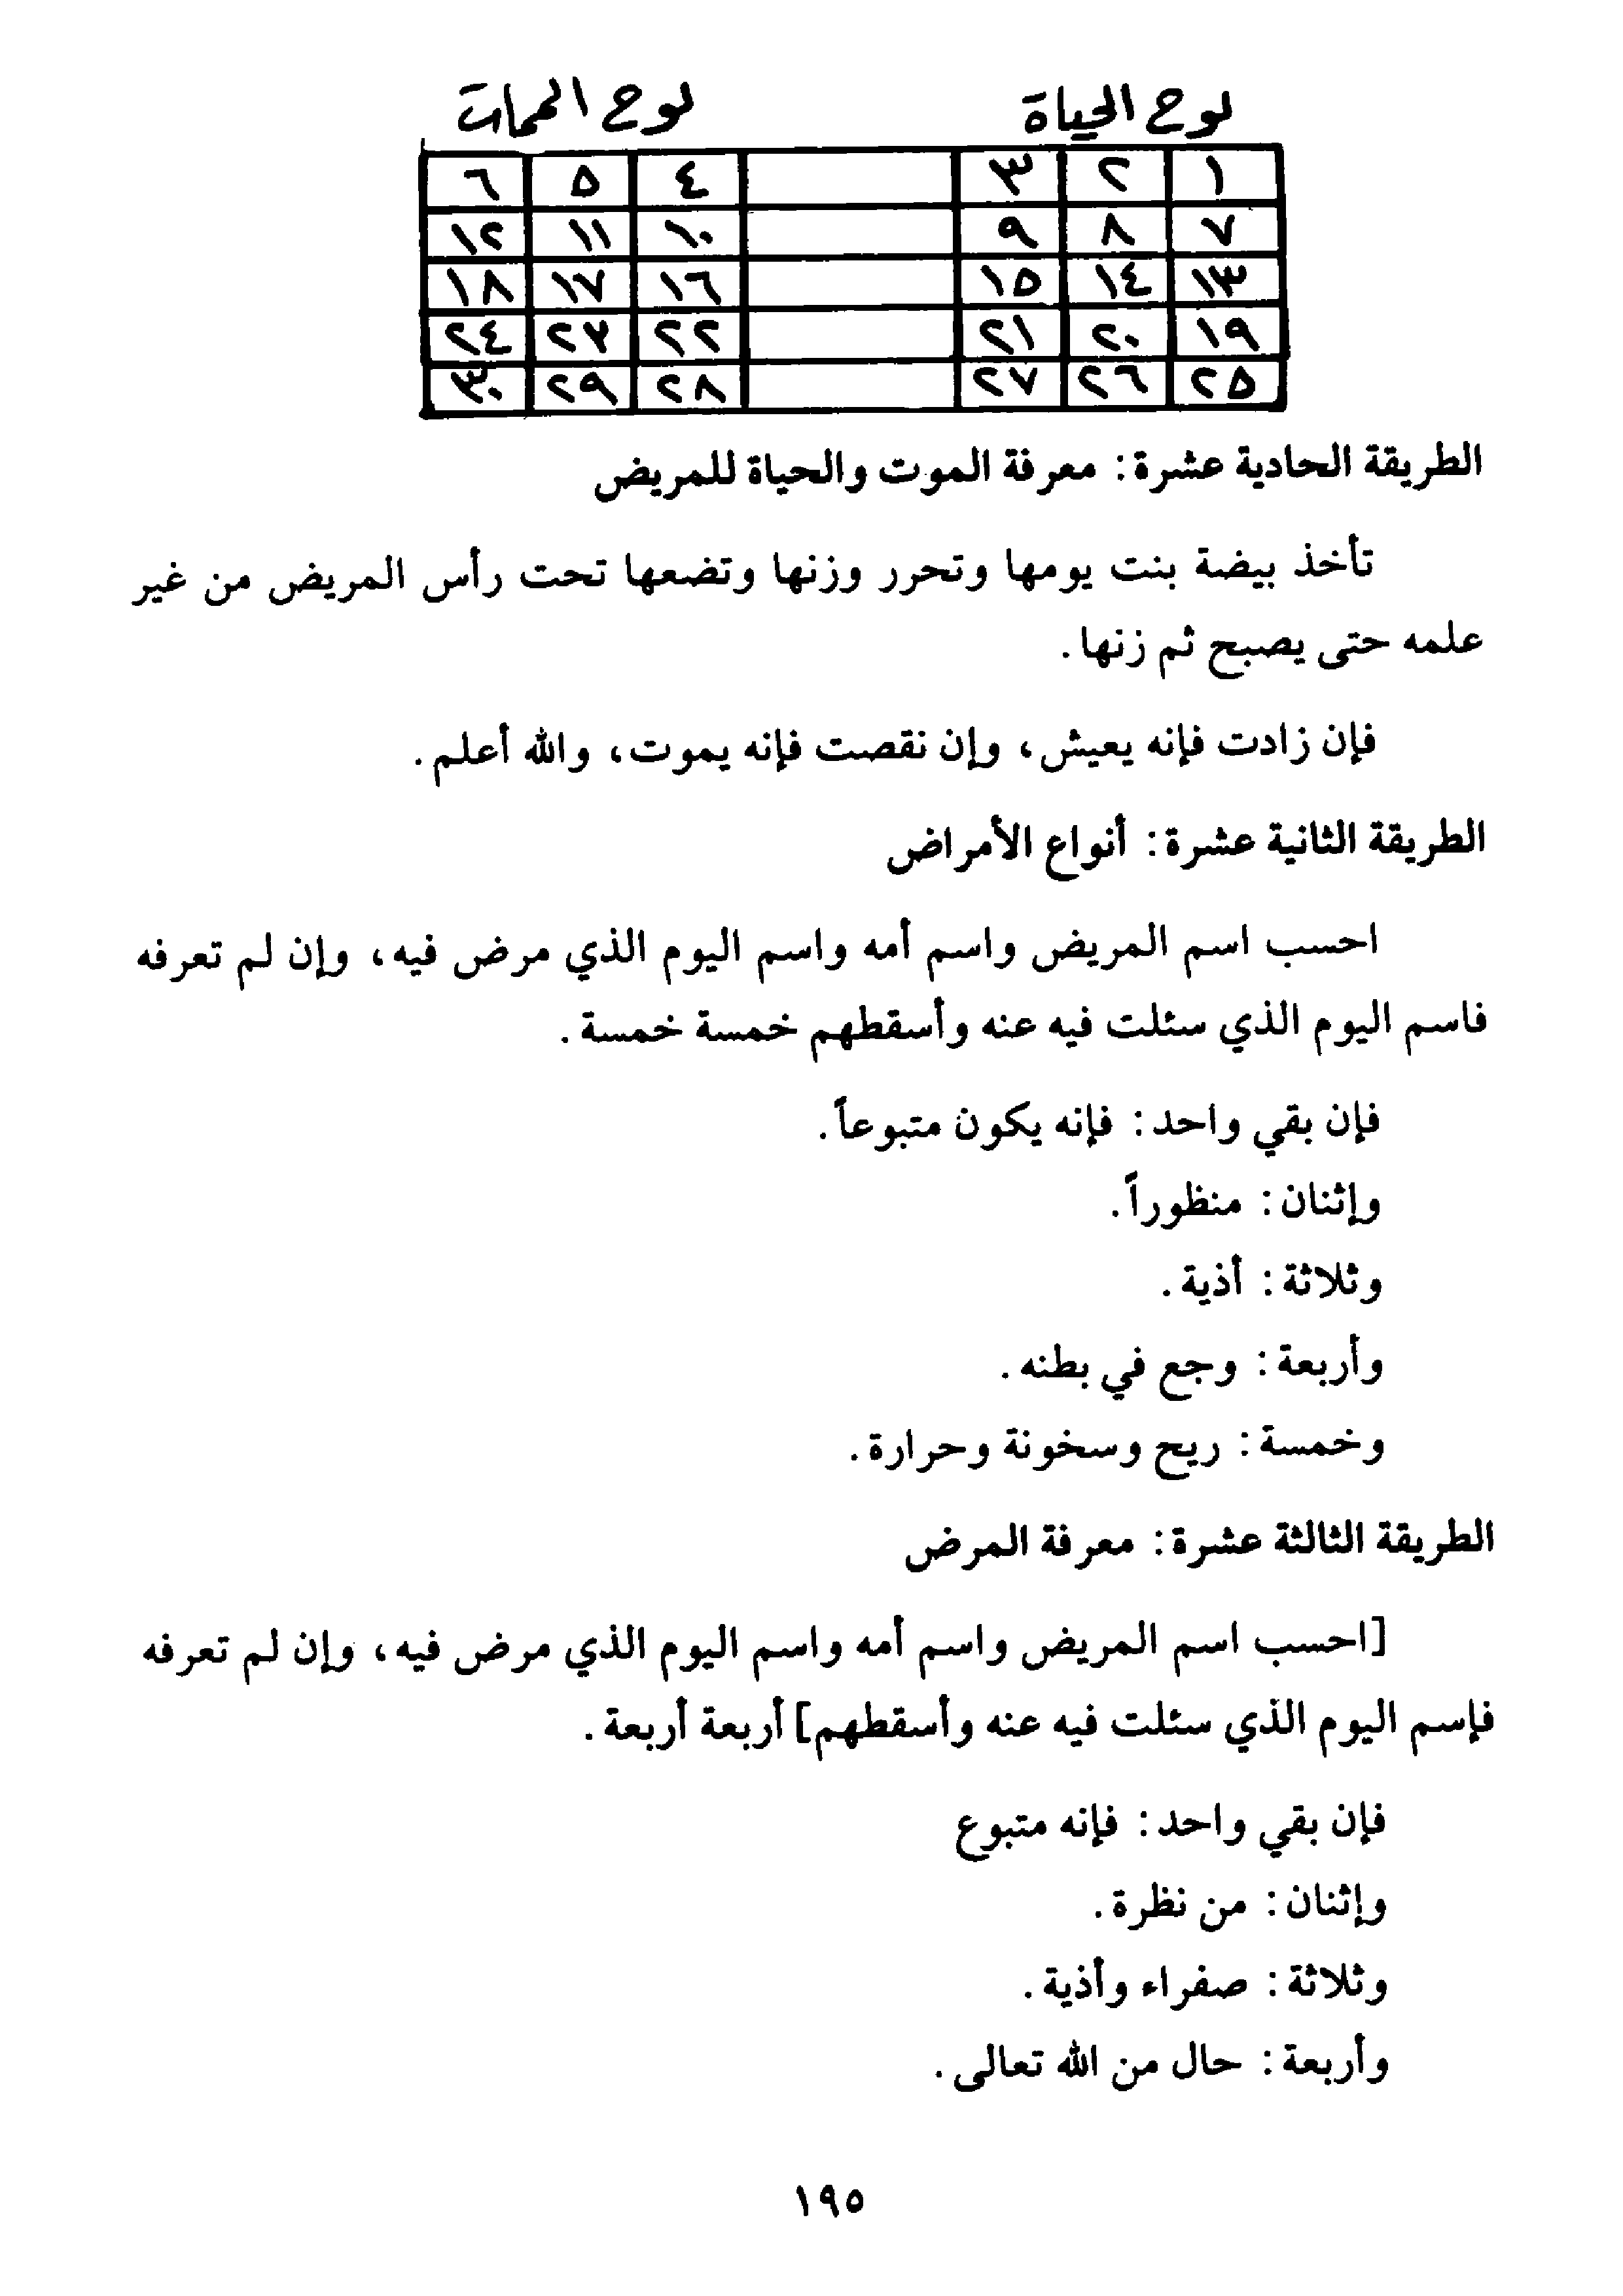 لوح الحياة لوح الممات
١ ٢ ٣ ٤ ٥ ٦
٧ ٨ ٩ ١٠ ١١ ١٢
١٣ ١٤ ١٥ ١٦ ١٧ ١٨
١٩ ٢٠ ٢١ ٢٢ ٢٣ ٢٤
٢٥ ٢٦ ٢٧ ٢٨ ٢٩ ٣٠
الطريقة الحادية عشرة: معرفة الموت والحياة للمريض
تأخذ بيضة بنت يومها وتحرر وزنها وتضعها تحت رأس المريض من غير
علمه حتى يصبح ثم زنها.
فإن زادت فإنه يعيش، وإن نقصت فإنه يموت، والله أعلم.
الطريقة الثانية عشرة: أنواع الأمراض
احسب اسم المريض واسم أمه واسم اليوم الذي مرض فيه، وإن لم تعرفه
فاسم اليوم الذي سئلت فيه عنه وأسقطهم خمسة خمسة.
فإن بقي واحد: فإنه يكون متبوعاً.
وإثنان: منظوراً.
وثلاثة: أذية.
وأربعة: وجع في بطنه.
وخمسة: ريح وسخونة وحرارة.
الطريقة الثالثة عشرة: معرفة المرض
[احسب اسم المريض واسم أمه واسم اليوم الذي مرض فيه، وإن لم تعرفه
فإسم اليوم الذي سئلت فيه عنه وأسقطهم] أربعة أربعة.
فإن بقي واحد: فإنه متبوع
وإثنان: من نظرة.
وثلاثة: صفراء وأذية.
وأربعة: حال من الله تعالى.
١٩٥